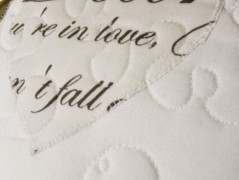 u're in love,
n't fall